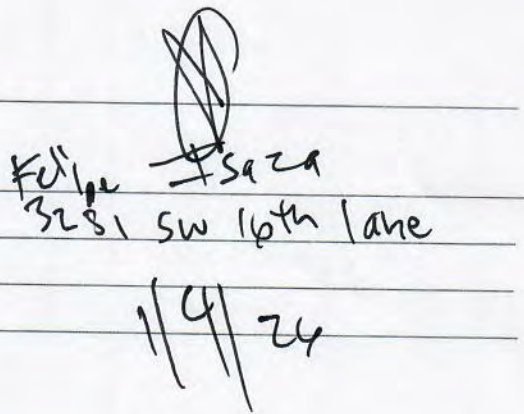 Felipe Isaza
3281 SW 16th lane
1/4/24